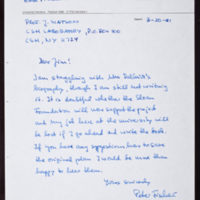 PROF. J. WATSON
CSH LABORATORY, P.O. BOX 100
CSH, NY 11724
Dear Jim!
I am struggling with
Biography, though I am still not writing
it. It is doubtful whether the Sloan
Foundation will support the project
and my job here at the university will
be lost if I go ahead and write the book.
If you have any suggestions how to save
the original plan I would be more than
happy to hear them.
Yours sincerely
Peter